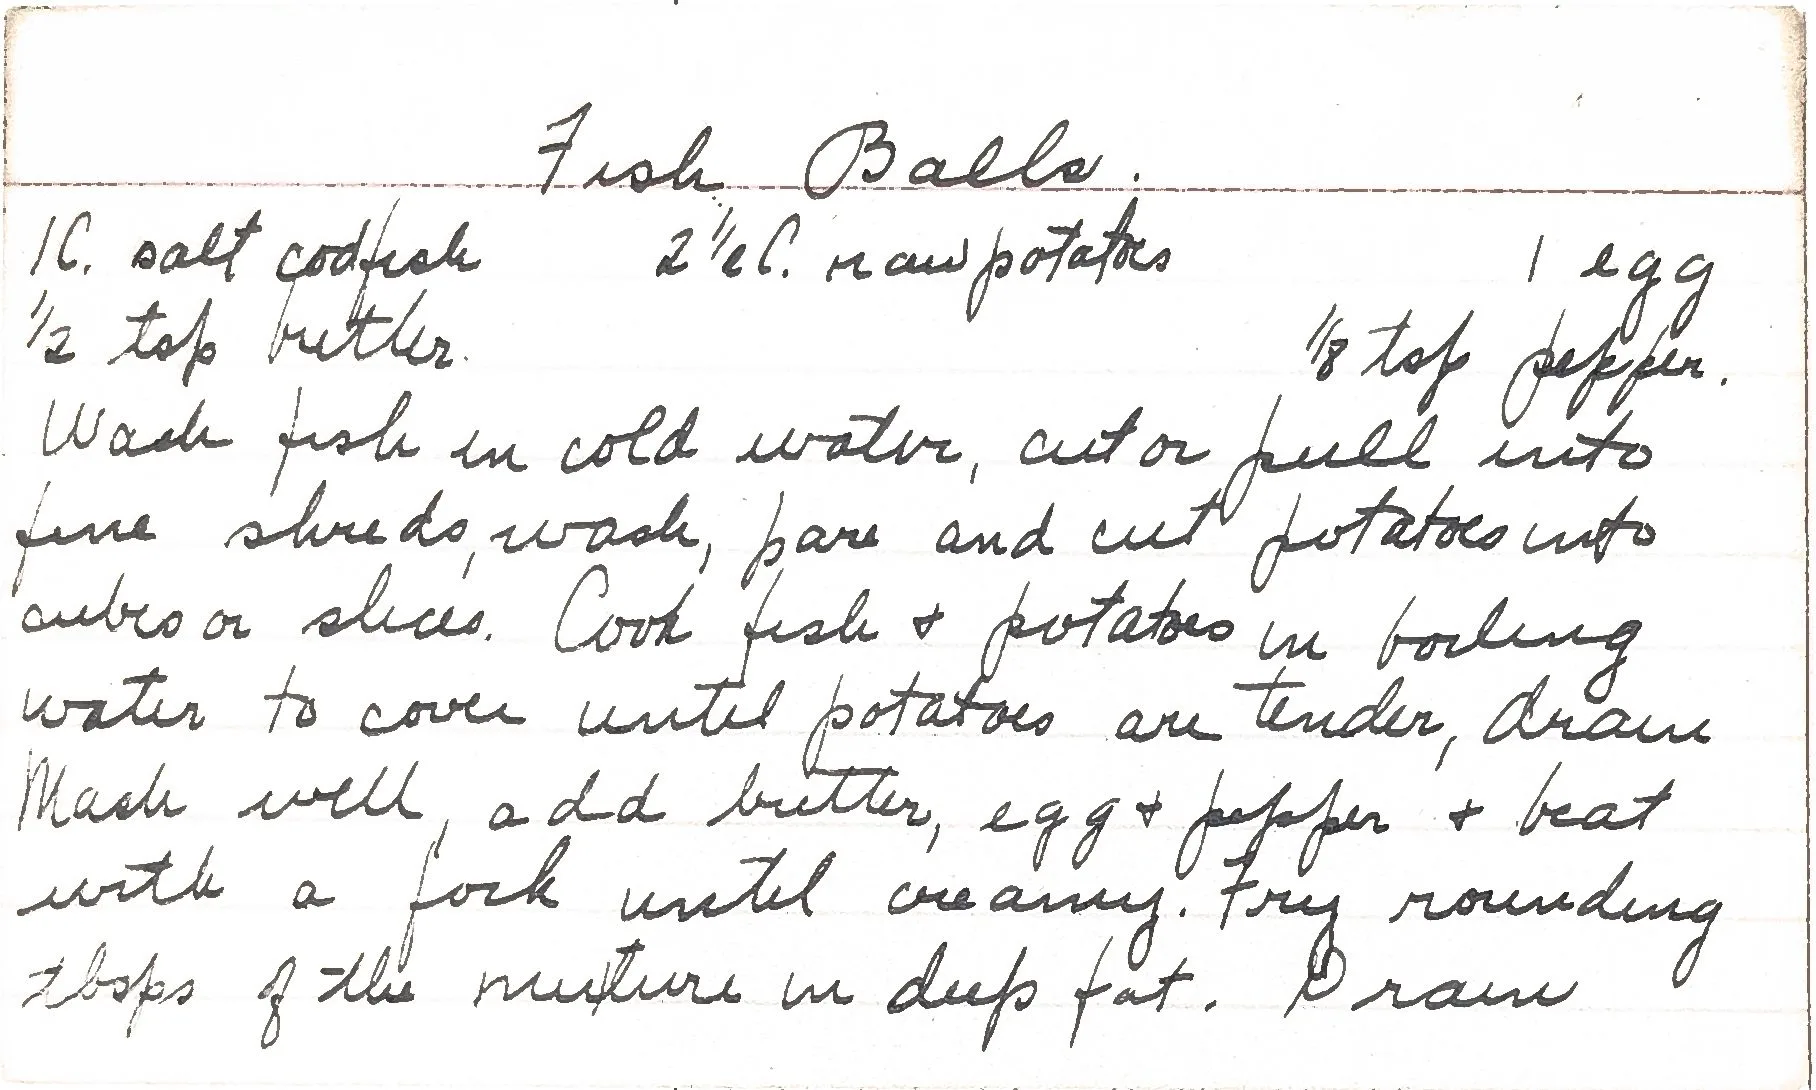 Fish Balls.
1C. salt codfish 2 1/2 C. raw potatoes 1 egg
1/2 tsp butter. 1/8 tsp pepper.
Wash fish in cold water, cut or pull into
fine shreds, wash, pare and cut potatoes into
cubes or slices. Cook fish + potatoes in boiling
water to cover until potatoes are tender, drain
Mash well, add butter, egg + pepper + beat
with a fork until creamy. Fry rounding
tbsps of the mixture in deep fat. Drain